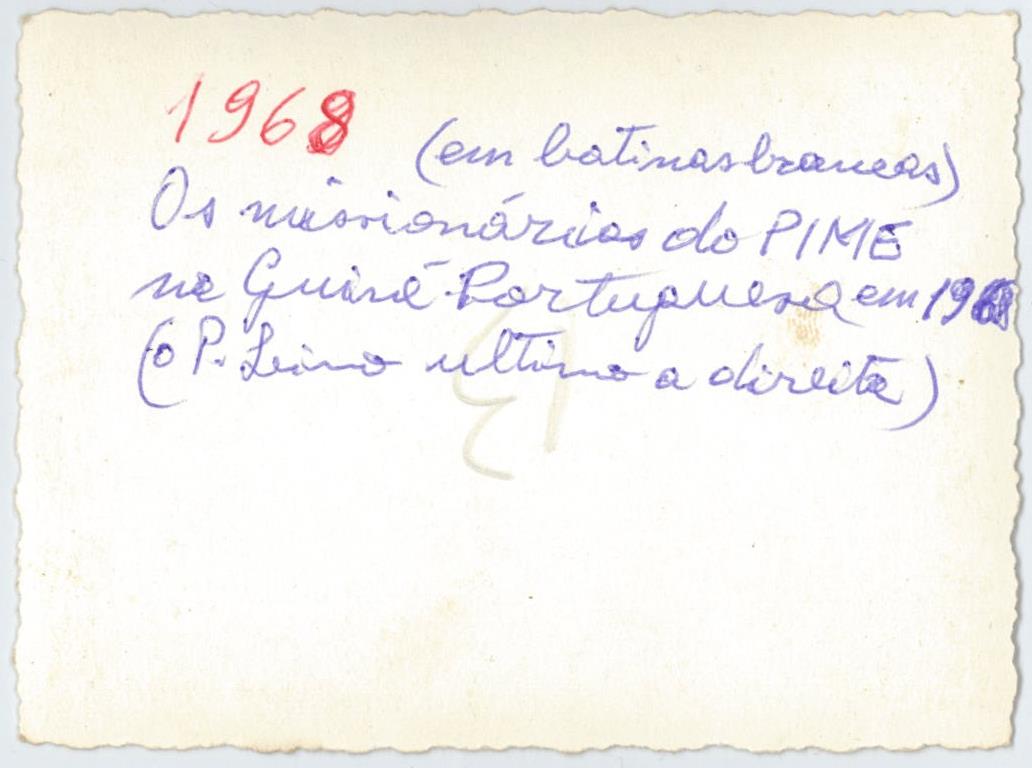 1968
(em batinas brancas)
Os missionários do PIME
na Guiné-Portuguesa em 1968
(o P. Lino ultimo a direita)